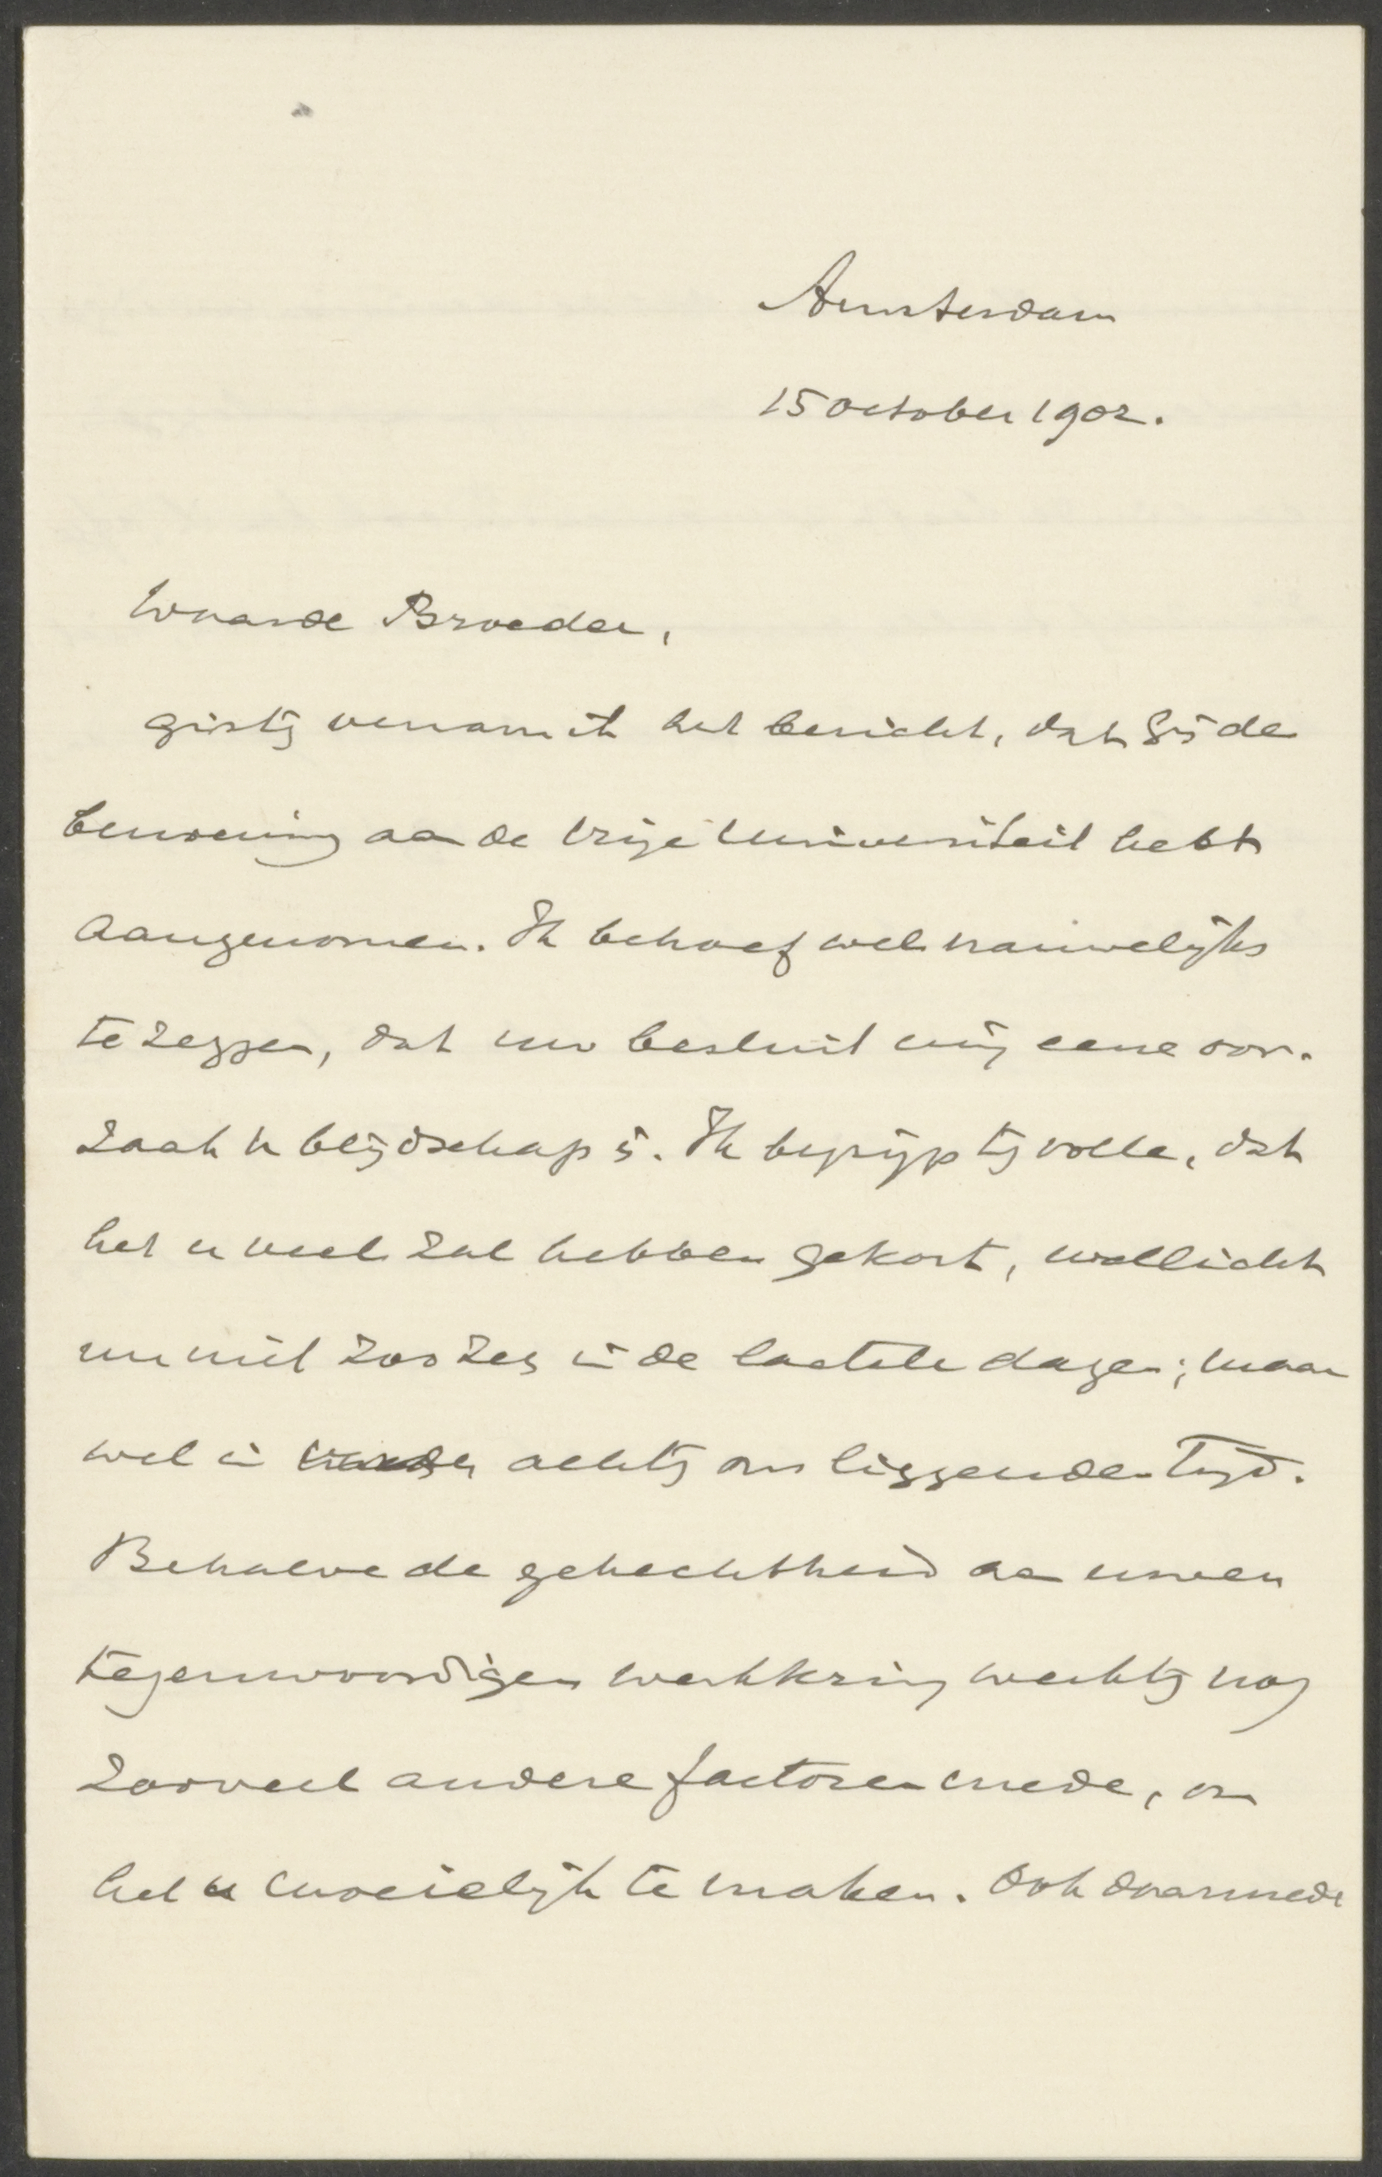 Amsterdam
15 October 1902.
Waarde Broeder,
gistr vernam ik het bericht, dat Gij de
benoeming aan de Vrije Universiteit hebt
aangenomen. Ik behoef wel nauwelijks
te zeggen, dat uw besluit mij eene oor-
zaak v blijdschap is. Ik begrijp tr volle, dat
het u veel zal hebben gekost, wellicht
nu niet zoo zeer in de laatste dagen; maar
wel in achtr ons liggenden tijd.
Behalve de gehechtheid aan uwen
tegenwoordigen werkkring werktr nog
zooveel andere factoren mede, om
het u moeielijk te maken. Ook daarmede